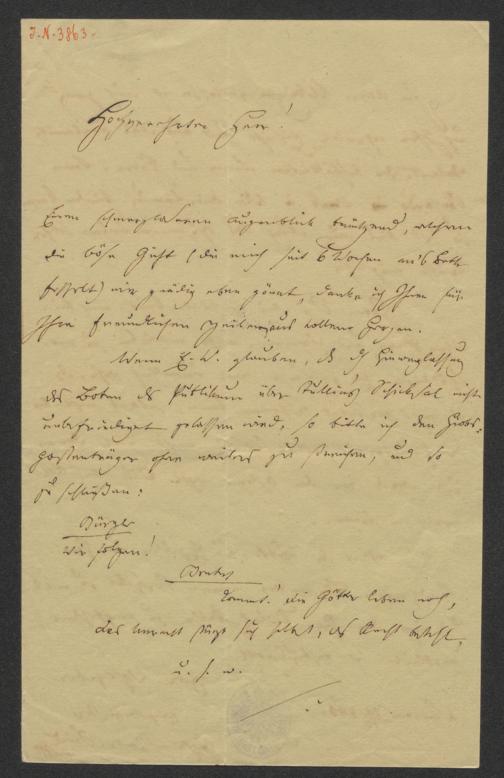 J.N. 3863.
Hochverehrter Herr!
Einen schmerzlosen Augenblick benützend, welchen
die böse Gicht (die mich seit 6 Wochen an's Bett
fesselt) mir gnädig eben gönnt, danke ich Ihnen für
Ihre freundlichen Zeilen aus vollem Herzen.
Wenn E. W. glauben, daß durch Hinweglassung
des Boten das Publikum über Tullia's Schicksal nicht
unbefriediget gelassen wird, so bitte ich den Hiobs-
postenträger ohne weiters zu streichen, und so
zu schließen:
Bürger
Wir folgen!
Brutus
Kommt! die Götter leben noch,
das Unrecht stürzt sich selbst, das Recht besteht.
u. s. w.